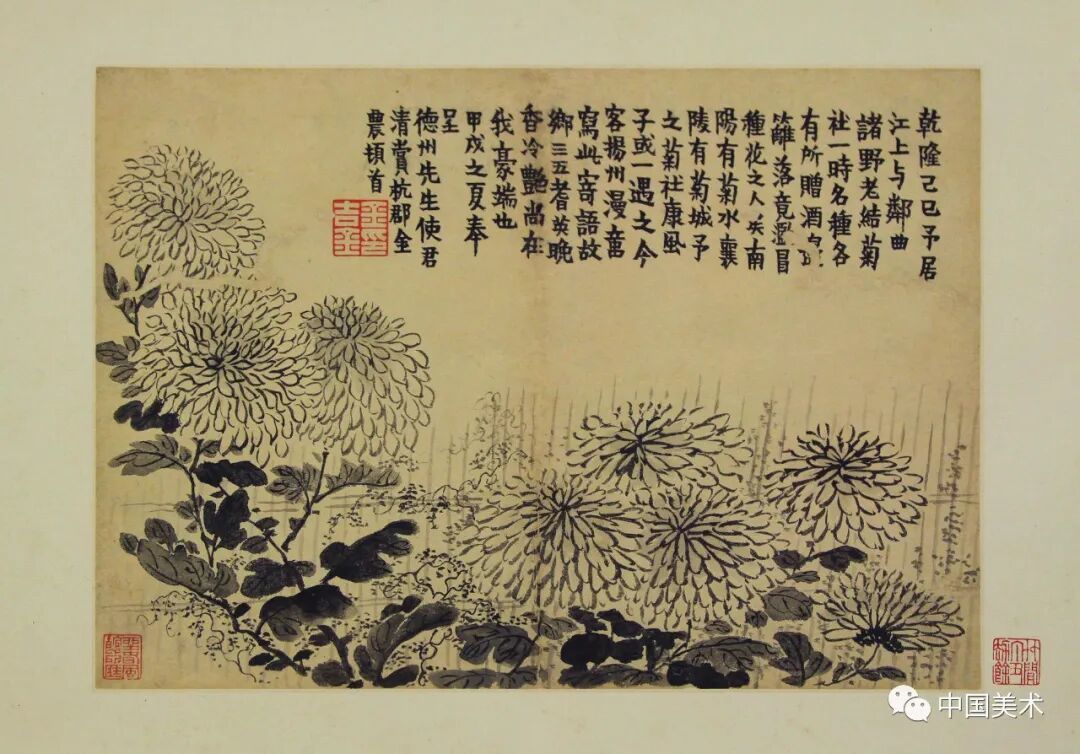 乾隆己巳予居
江上与鄰曲
諸野老結菊
社一時名種各
有所贈酒
籬落竟冒
種花之人矣南
陽有菊水襄
陵有菊城予
之菊社康風
子或一遇之今
客揚州漫
寫此寄語故
鄉三五耆英晚
香冷艷尚在
我豪端也
甲戌之夏奉
呈
德州先生使君
清賞杭郡金
農頓首
金印
吉金
中国美术